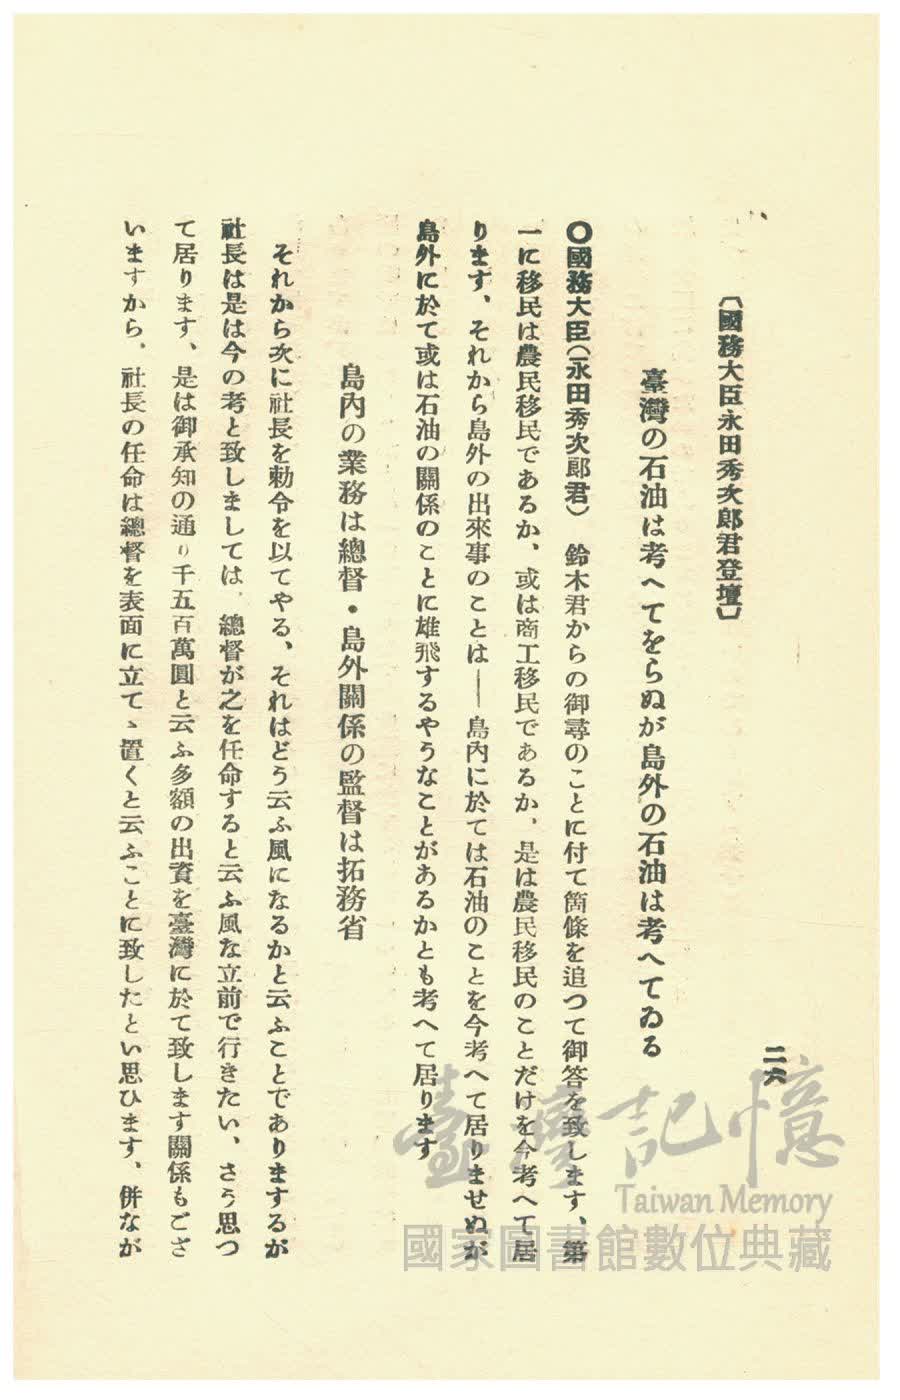 二六
〔國務大臣永田秀次郎君登壇〕
臺灣の石油は考へてをらぬが島外の石油は考へてゐる
〇國務大臣(永田秀次郎君)　鈴木君からの御尋のことに付て箇條を追つて御答を致します、第
一に移民は農民移民であるか、或は商工移民であるか、是は農民移民のことだけを今考へて居
ります、それから島外の出來事のことは――島內に於ては石油のことを今考へて居りませぬが
島外に於て或は石油の關係のことに雄飛するやうなことがあるかとも考へて居ります
島內の業務は總督・島外關係の監督は拓務省
それから次に社長を勅令を以てやる、それはどう云ふ風になるかと云ふことでありまするが
社長は是は今の考と致しましては、總督が之を任命すると云ふ風な立前で行きたい、さう思つ
て居ります、是は御承知の通り千五百萬圓と云ふ多額の出資を臺灣に於て致します關係もござ
いますから、社長の任命は總督を表面に立てゝ置くと云ふことに致したとい思ひます、併なが
臺灣記憶
Taiwan Memory
國家圖書館數位典藏